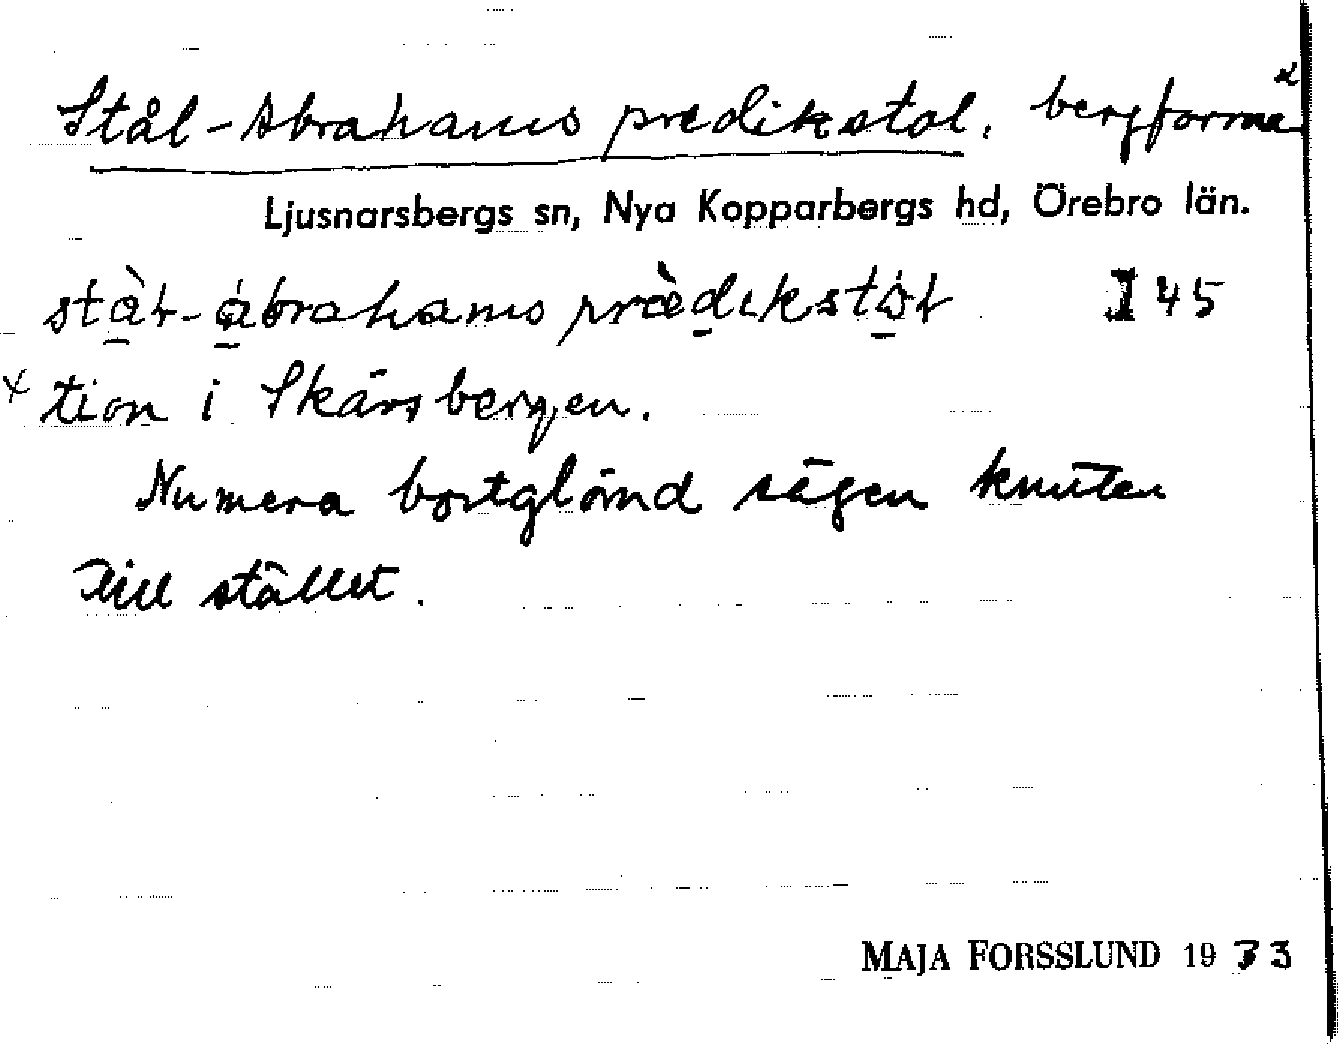 Stål-Abrahams predikstol, bergforma x
Ljusnarsbergs sn, Nya Kopparbergs hd, Örebro län.
stå̀l-ábrahams prèdikstół I 45
x tion i Skärsbergen.
Numera bortglömd sägen knuten
till stället.
MAJA FORSSLUND 1933